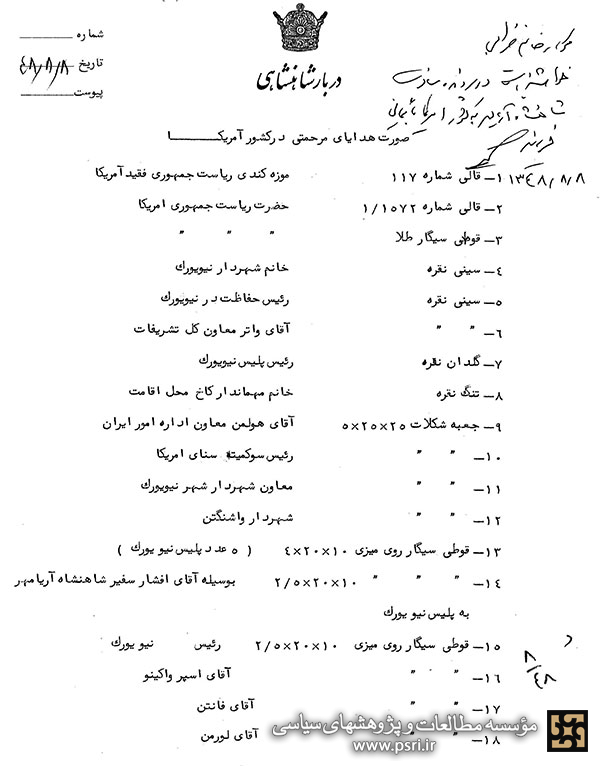 دربار شاهنشاهی
شماره
تاریخ ۴۸/۸/۸
پیوست
شاهنشاه آریامهر به کشور امریکا
۱۳۴۸/۸/۸
صورت هدایای مرحمتی در کشور آمریکا
۱ـ قالی شماره ۱۱۷ موزه کندی ریاست جمهوری فقید آمریکا
۲ـ قالی شماره ۱/۱۵۷۲ حضرت ریاست جمهوری امریکا
۳ـ قوطی سیگار طلا " " "
۴ـ سینی نقره خانم شهردار نیویورك
۵ـ سینی نقره رئیس حفاظت در نیویورك
۶ـ " " آقای واتر معاون کل تشریفات
۷ـ گلدان نقره رئیس پلیس نیویورك
۸ـ تنگ نقره خانم مهماندار کاخ محل اقامت
۹ـ جعبه شکلات ۲۵×۲۵×۵ آقای هولمن معاون اداره امور ایران
۱۰ـ " " رئیس سوکمیته سنای امریکا
۱۱ـ " " معاون شهردار شهر نیویورك
۱۲ـ " " شهردار واشنگتن
۱۳ـ قوطی سیگار روی میزی ۱۰×۲۰×۴ ( ۵ عدد پلیس نیو یورك )
۱۴ـ " " " ۱۰×۲۰×۲/۵ بوسیله آقای افشار سفیر شاهنشاه آریامهر
به پلیس نیو یورك
۱۵ـ قوطی سیگار روی میزی ۱۰×۲۰×۲/۵ رئیس نیو یورك
۱۶ـ " " آقای اسپر واکینو
۱۷ـ " " آقای فانتن
۱۸ـ " " آقای لورمن
۸/۴۸
مؤسسه مطالعات و پژوهشهای سیاسی
www.psri.ir